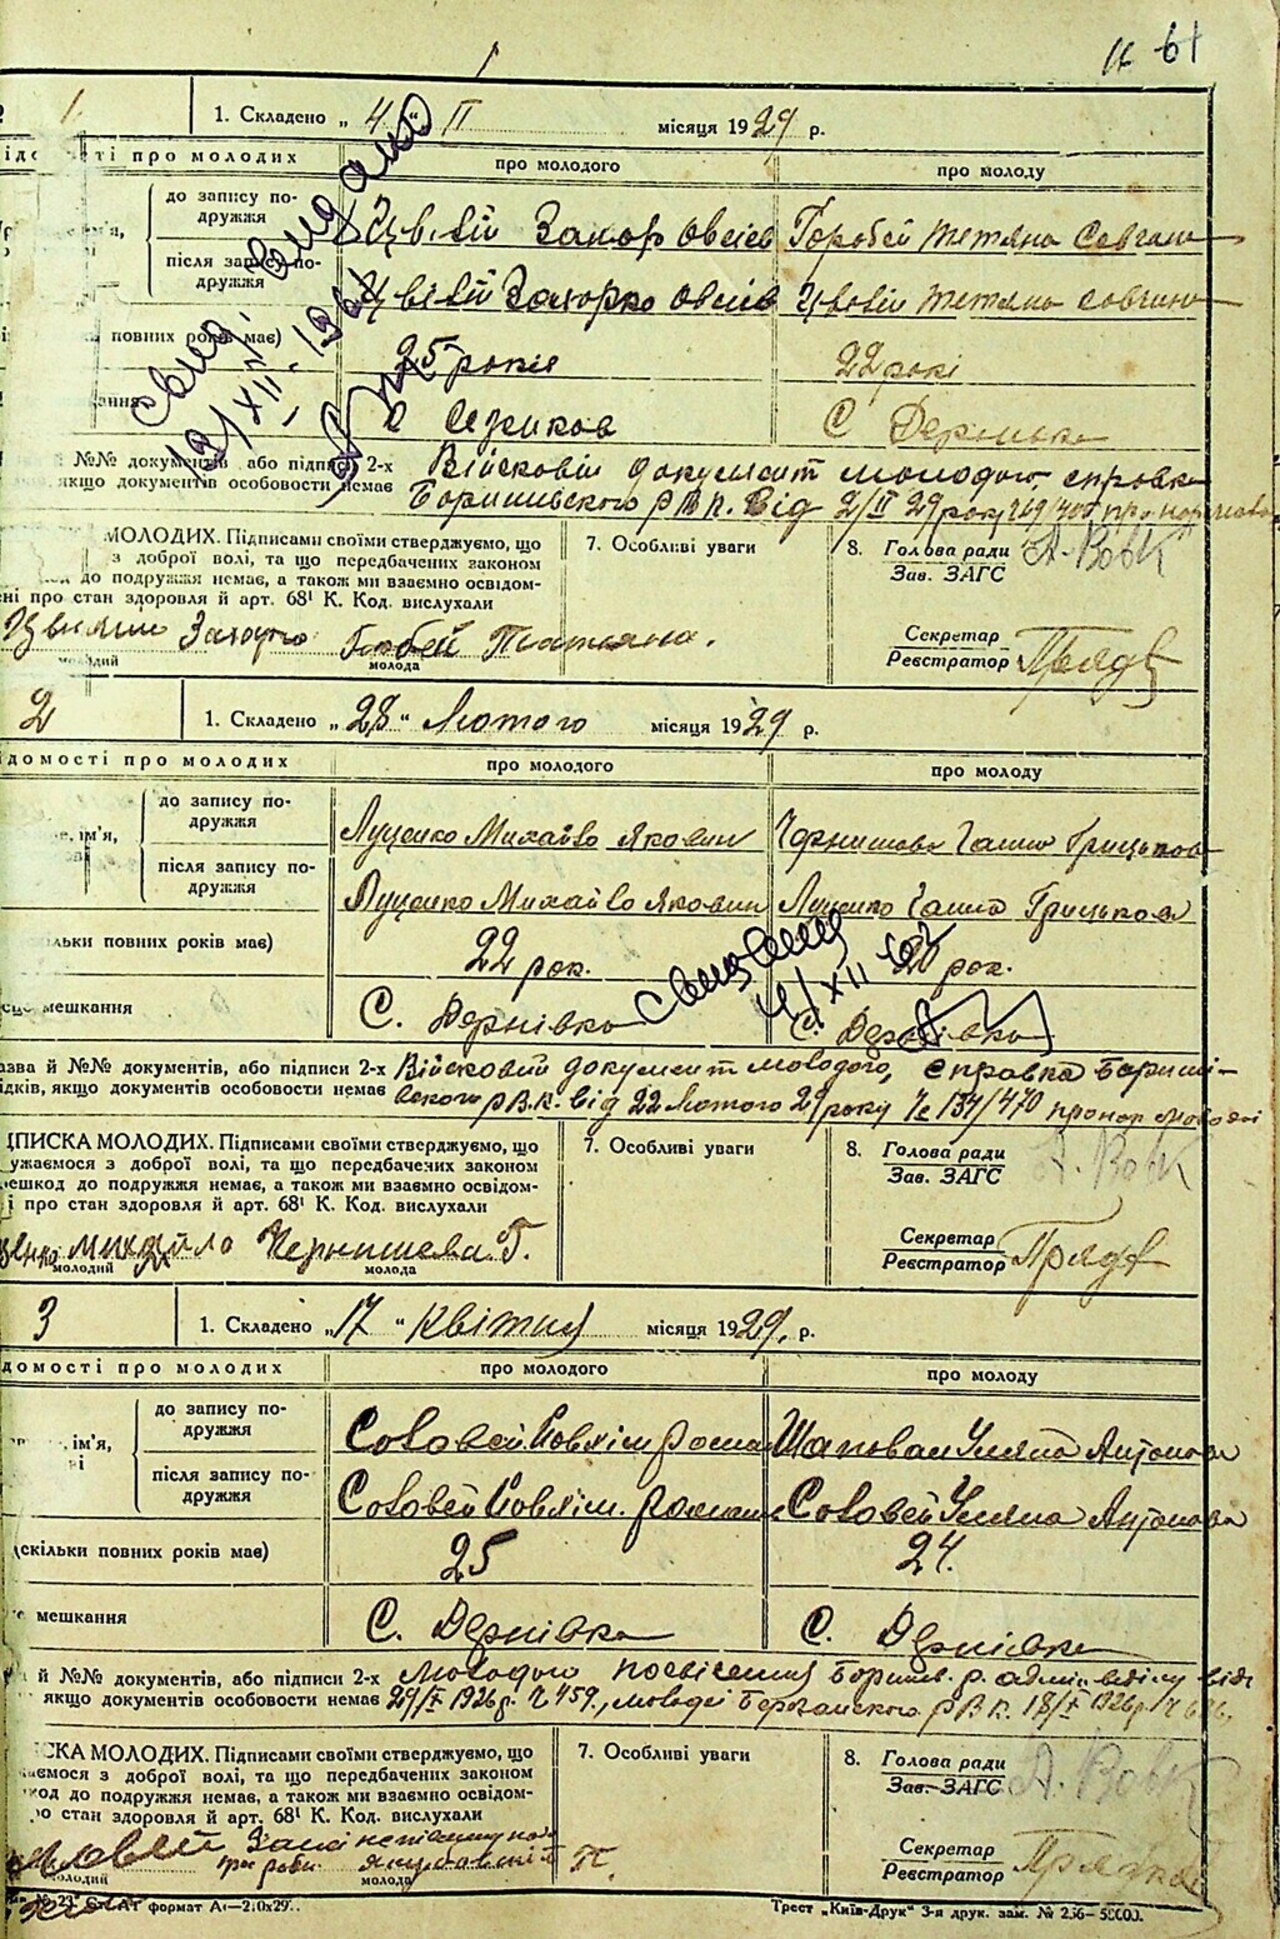 61
1
1. Складено „4“ II місяця 1929 р.
ті про молодих
про молодого
про молоду
до запису по-
дружжя
Горобей Тетяна Савчина
після запису по-
дружжя
Цвілій Захарко Овсіїв
Цвілій Тетяна Савчина
повних років має)
25 років
22 рокі
С Дернівка
й №№ документів або підписи 2-х
якщо документів особовости немає
Військовий документ молодого, справка
Баришівського від 2/II 29 року
МОЛОДИХ. Підписами своїми стверджуємо, що
з доброї волі, та що передбачених законом
до подружжя немає, а також ми взаємно освідом-
ені про стан здоровля й арт. 68¹ К. Код. вислухали
7. Особливі уваги
8. Голова ради
Зав. ЗАГС
А. Вовк
Секретар
Реєстратор
Горобей Татьяна.
молодий
молода
свид. выдано
12/XII-
2
1. Складено „28“ Лютого місяця 1929 р.
домості про молодих
про молодого
про молоду
ім'я,
до запису по-
дружжя
Луценко Михайло Якович
Чернишова Ганна Грицькова
після запису по-
дружжя
Луценко Михайло Якович
Луценко Ганна Грицькова
льки повних років має)
22 рок.
20 рок.
мешкання
С. Дернівка
С. Дернівка
4/XII
азва й №№ документів, або підписи 2-х
ідків, якщо документів особовости немає
Військовий документ молодого, справка Баришів-
ського р.В.К. від 22 Лютого 29 року № 134/470
ДПИСКА МОЛОДИХ. Підписами своїми стверджуємо, що
ужаємося з доброї волі, та що передбачених законом
ешкод до подружжя немає, а також ми взаємно освідом-
і про стан здоровля й арт. 68¹ К. Код. вислухали
7. Особливі уваги
8. Голова ради
Зав. ЗАГС
А. Вовк
Секретар
Реєстратор
Михайло Чернишева Г.
молодий
молода
3
1. Складено „17“ Квітня місяця 1929. р.
домості про молодих
про молодого
про молоду
ім'я,
до запису по-
дружжя
Соловей
Шаповал Уляна Антонова
після запису по-
дружжя
Соловей
Соловей Уляна Антонова
(скільки повних років має)
25
24.
мешкання
С. Дернівка
С. Дернівка
й №№ документів, або підписи 2-х
якщо документів особовости немає
Молодого посвідчення Баришів. р. адмін. відділу від
1926 р. № 459., молодої Березанського р В К. 18/X 1926 р.
СКА МОЛОДИХ. Підписами своїми стверджуємо, що
аємося з доброї волі, та що передбачених законом
од до подружжя немає, а також ми взаємно освідом-
ро стан здоровля й арт. 68¹ К. Код. вислухали
7. Особливі уваги
8. Голова ради
Зав. ЗАГС
А. Вовк
Секретар
Реєстратор
молодий
молода
формат А
Трест „Київ-Друк“ 3-я друк. зам. № 256—